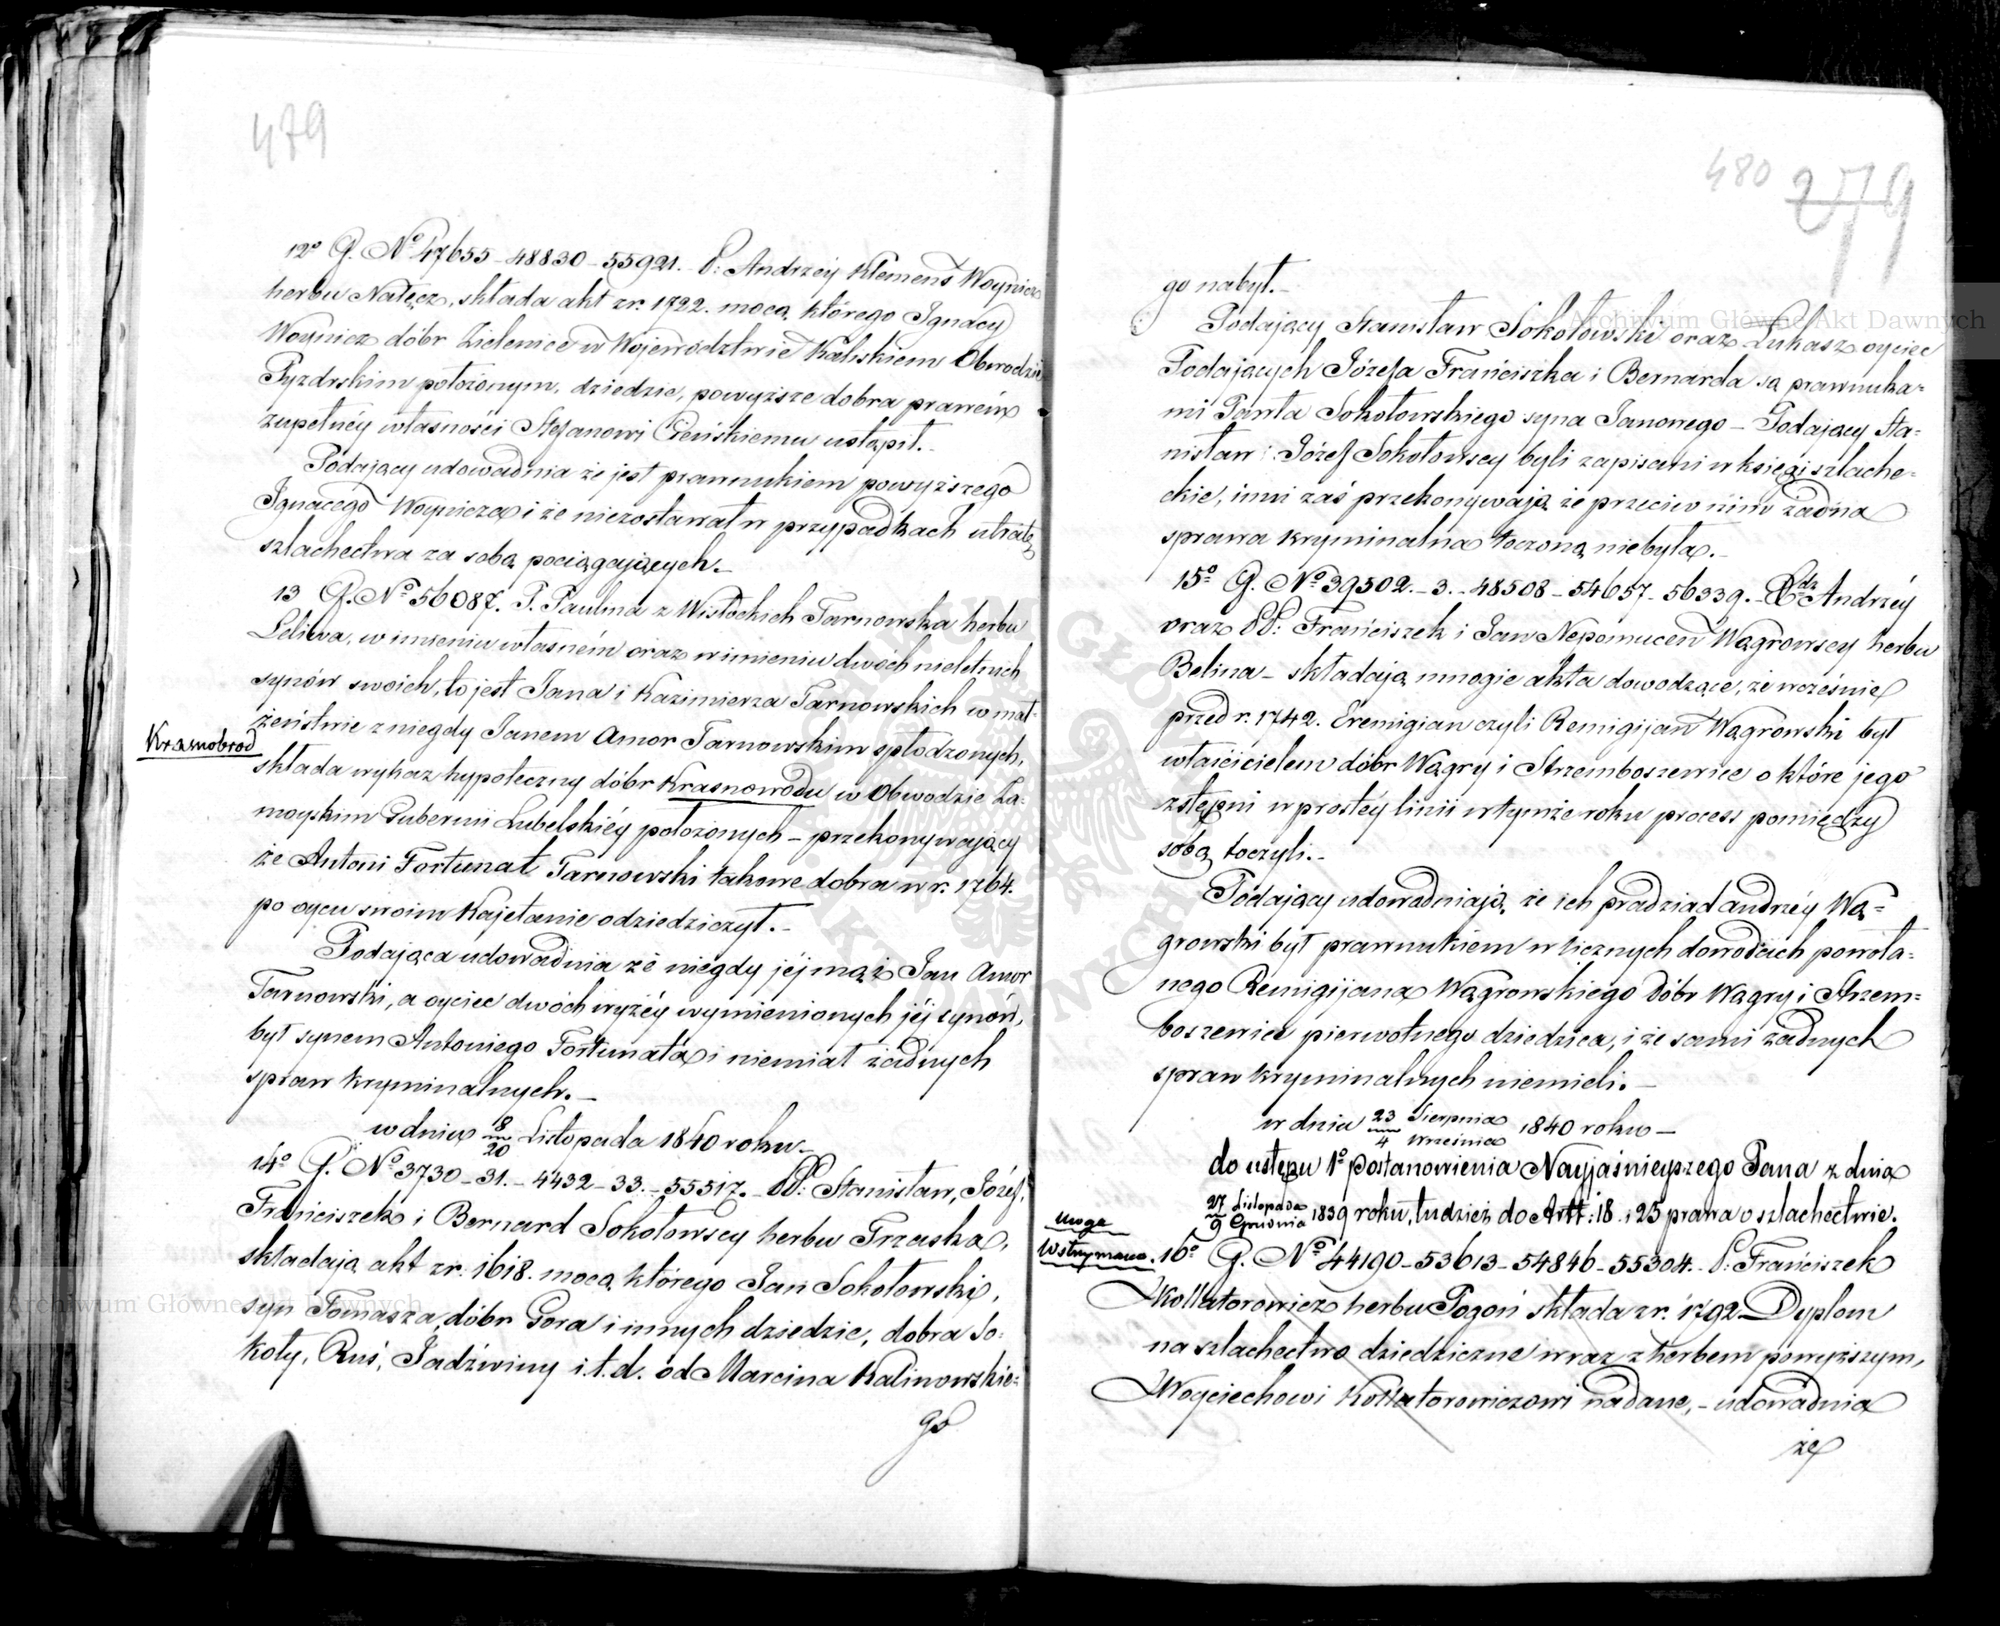 479
12º G. Nº 47655 - 48830 - 55921. - P: Andrzéy Klemens Woynicz
herbu Nałęcz, składa akt z r. 1722. mocą którego Ignacy
Woynicz dóbr Zieleniec w Województwie Kaliskiem Obwodzie
Pyzdrskim położonym, dziedzic, powyższe dobra prawem
zupełnéy własności Stefanowi Cieńskiemu ustąpił. -
Podający udowadnia że jest prawnukiem powyższego
Ignacego Woynicza i że niezostawał w przypadkach utratę
szlachectwa za sobą pociągających. -
13 G. Nº 56087. P. Paulina z Wisłockich Tarnowska herbu
Leliwa, w imieniu własném oraz w imieniu dwóch nieletnich
synów swoich, to jest Jana i Kazimierza Tarnowskich w mał-
żeństwie z niegdy Janem Amor Tarnowskim spłodzonych,
Krasnobrod
składa wykaz hypoteczny dóbr Krasnowodu w Obwodzie Za-
moyskim Gubernii Lubelskiéy położonych - przekonywający
że Antoni Fortunat Tarnowski takowe dobra w r. 1764.
po oycu swoim Kajetanie odziedziczył. -
Podająca udowadnia że niegdy jéj mąż Jan Amor
Tarnowski, a oyciec dwóch wyżéy wymienionych jéj synów,
był synem Antoniego Fortunata i niemiał żadnych
spraw kryminalnych. -
w dniu 8/20 Listopada 1840 roku. -
14º G. Nº 3730 - 31. - 4432 - 33. - 55517. - PP: Stanisław, Józef,
Franciszek i Bernard Sokołowscy herbu Trzaska,
składają akt z r. 1618. mocą którego Jan Sokołowski,
syn Tomasza, dóbr Gora i innych dziedzic, dobra So-
koły, Ruś, Jadźwiny i. t. d. od Marcina Kalinowskie-
go
480 279
go nabył. -
Podający Stanisław Sokołowski oraz Łukasz oyciec
Podających Józefa Franciszka i Bernarda są prawnuka-
mi Pawła Sokołowskiego syna Janowego - Podający Sta-
nisław i Józef Sokołowscy byli zapisani w księgi szlache-
ckie, inni zaś przekonywają że przeciw nim żadna
sprawa kryminalna toczoną niebyła. -
15º G. Nº 39502. - 3. - 48508 - 54657 - 56339. - Andrzéy
oraz PP: Franciszek i Jan Nepomucen Wągrowscy herbu
Belina - składają mnogie akta dowodzące, że wcześnie
przed r. 1742. Eremigian czyli Remigijan Wągrowski był
właścicielem dóbr Wągry i Strzemboszewice o które jego
zstępni w prostéy linii w tymże roku process pomiędzy
sobą toczyli. -
Podający udowadniają, że ich pradziad Andrzéy Wą-
growski był prawnukiem w licznych dowodach powoła-
nego Remigijana Wągrowskiego dóbr Wągry i Strzem-
boszewice pierwotnego dziedzica, i że sami żadnych
spraw kryminalnych niemieli. -
w dniu 23 Sierpnia / 4 Września 1840 roku -
do ustępu 1º Postanowienia Nayjaśnieyszego Pana z dnia
27 Listopada / 9 Grudnia 1839 roku, tudzież do Artt: 18. i 25 prawa o szlachectwie.
uwaga
Wstrzymana. 16º G. Nº 44190 - 53613 - 54846 - 55304. - P: Franciszek
Kołłatorowicz herbu Pogoń składa z r. 1792 Dyplom
na szlachectwo dziedziczne wraz z herbem powyższym,
Woyciechowi Kołłatorowiczowi nadane, - udowadnia
że
Archiwum Główne Akt Dawnych
Archiwum Główne Akt Dawnych
ARCHIWUM GŁÓWNE AKT DAWNYCH